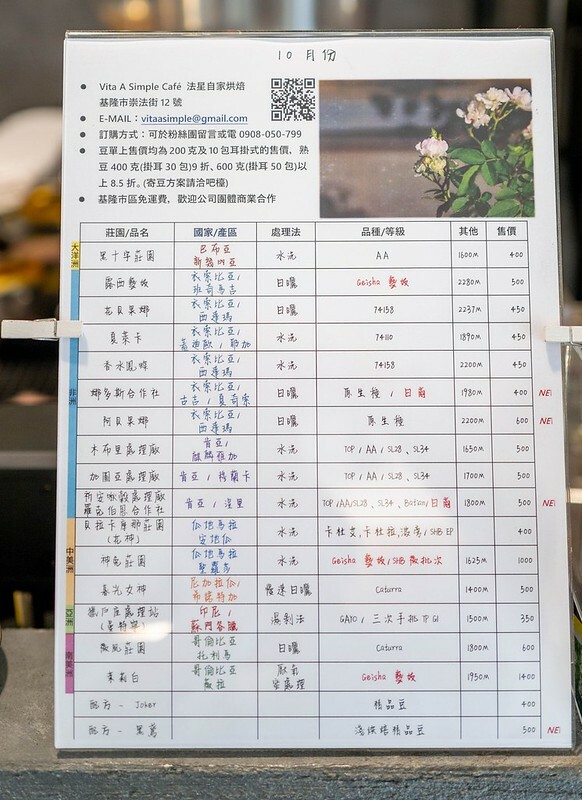 10月份
Vita A Simple Café 法星自家烘焙
基隆市崇法街 12 號
E-MAIL：vitaasimple@gmail.com
訂購方式：可於粉絲團留言或電 0908-050-799
豆單上售價均為 200 克及 10 包耳掛式的售價，熟
豆 400 克(掛耳 30 包)9 折、600 克(掛耳 50 包)以
上 8.5 折。(寄豆方案請洽吧檯)
基隆市區免運費，歡迎公司團體商業合作
莊園/品名 國家/產區 處理法 品種/等級 其他 售價
大洋洲
黑十字莊園 巴布亞 新幾內亞 水洗 AA 1600m 400
非洲
露西藝妓 衣索比亞/ 班奇馬吉 日曬 Geisha 藝妓 2280m 500
花貝果娜 衣索比亞/ 西達瑪 日曬 74158 2237m 450
夏萊卡 衣索比亞/ 蓋迪歐/耶加 水洗 74110 1890m 450
香水鳳蝶 衣索比亞/ 西達瑪 水洗 74158 2200m 450
娜多斯合作社 衣索比亞/ 古吉/夏奇索 日曬 原生種/日曬 1980m 400 NE
阿貝果娜 衣索比亞/ 西達瑪 日曬 原生種 2200m 600 NE
木布里處理廠 肯亞/ 麒麟雅加 水洗 TOP/AA/SL28、SL34 1650m 500
加圖亞處理廠 肯亞/穆蘭卡 水洗 TOP/AA/SL28、SL34 1700m 500
處理廠 羅克伯恩合作社 肯亞/涅里 水洗 TOP/AA/SL28、SL34、Batian/日曬 1800m 500 NE
中美洲
貝拉卡摩那莊園 (花神) 瓜地馬拉 安地瓜 水洗 卡杜艾,卡杜拉,波旁/SHB EP 400
神兔莊園 瓜地馬拉 聖羅莎 水洗 Geisha 藝妓/SHB微批次 1625m 1000
晨光女神 尼加拉瓜/ 希諾特加 慢速日曬 Caturra 1400m 500
亞洲
處理站 (曼特寧) 印尼/ 蘇門答臘 濕剝法 GAYO/三次手挑TP G1 1500m 350
南美洲
薇妮莊園 哥倫比亞 托利馬 日曬 Caturra 1800m 600
茉莉白 哥倫比亞 薇拉 厭氧 蜜處理 Geisha 藝妓 1950m 1400
配方 - Joker 精品豆 400
配方 - 黑鳶 淺烘焙精品豆 500 NE